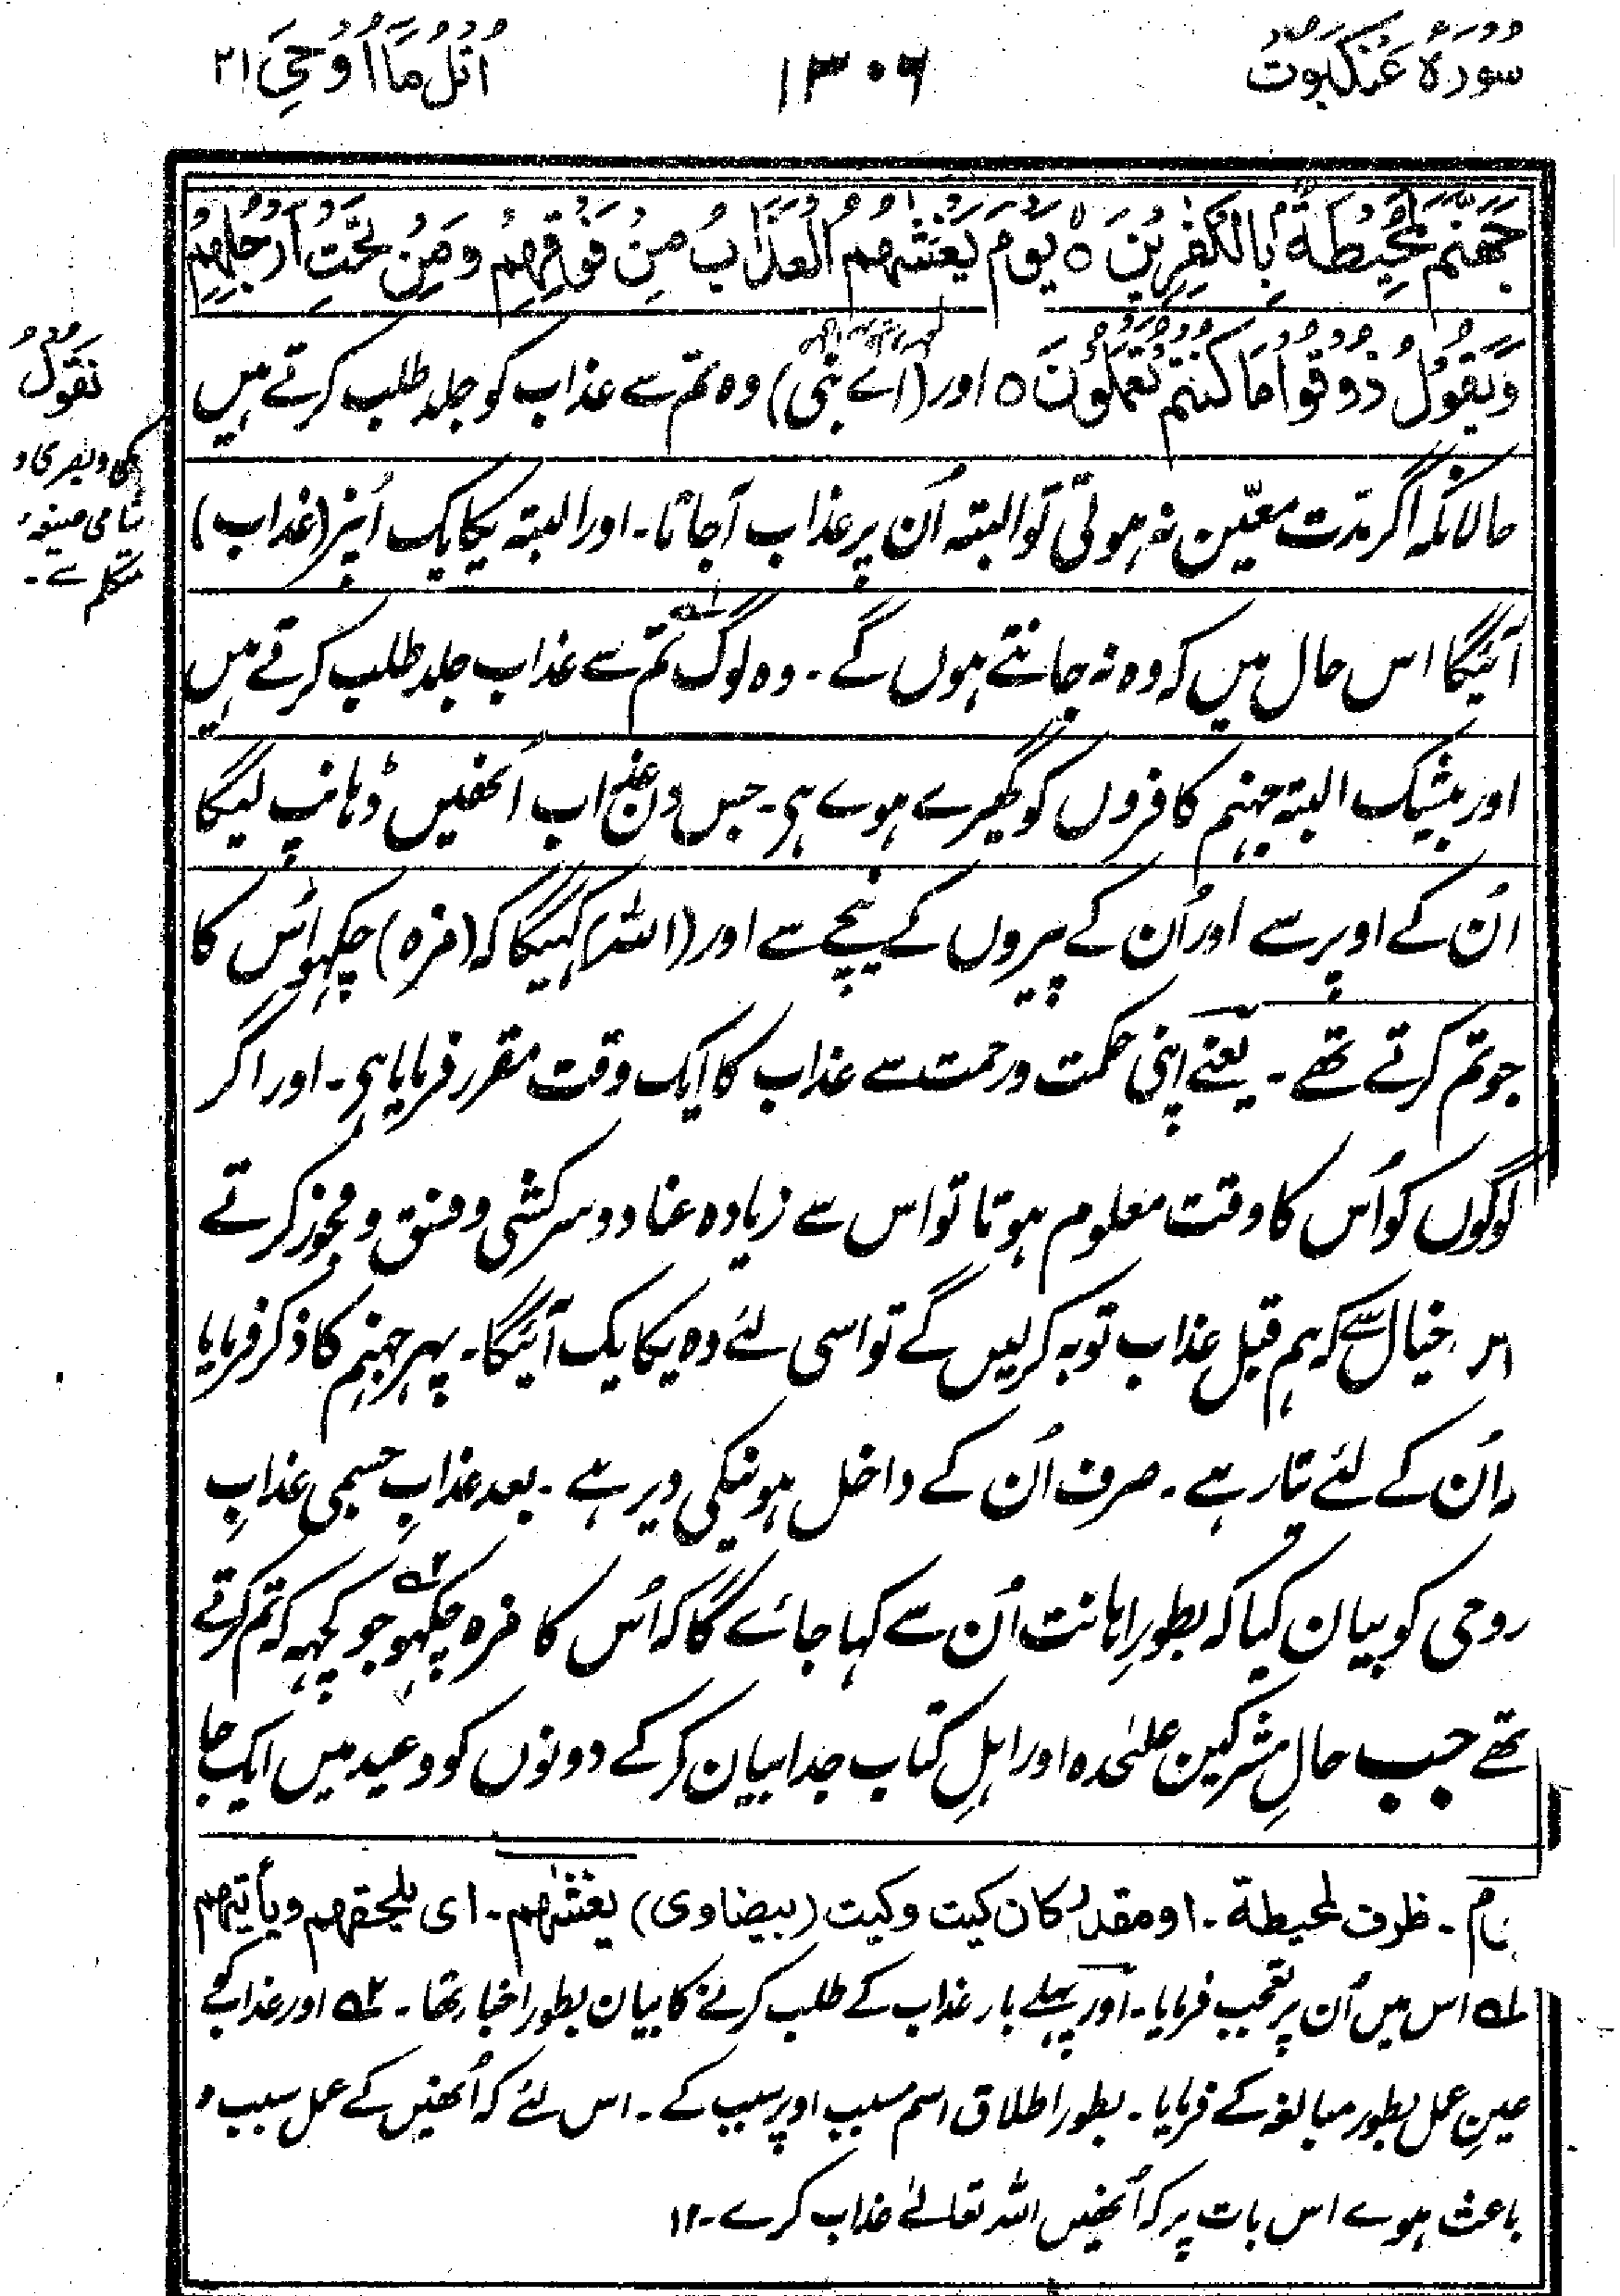 سورۃ عنکبوت
۱۳۰۶
اُتْلُ مَآ اُوْحِیَ ۲۱
جَهَنَّمَ لَمُحِيْطَةٌۢ بِالْكٰفِرِيْنَ ۝ يَوْمَ يَغْشٰىهُمُ الْعَذَابُ مِنْ فَوْقِهِمْ وَمِنْ تَحْتِ اَرْجُلِهِمْ
وَيَقُوْلُ ذُوْقُوْا مَا كُنْتُمْ تَعْمَلُوْنَ ۝ اور (اے نبی) وہ تم سے عذاب کو جلد طلب کرتے ہیں
نَقُوْلُ
مکی و بصری و
شامی صیغہ
متکلم سے۔
حالانکہ اگر مدّت معیّن نہ ہوتی تو البتہ اُن پر عذاب آجاتا۔ اور البتہ یکایک اُنپر (عذاب)
آئیگا اس حال میں کہ وہ نہ جانتے ہوں گے۔ وہ لوگ تم ۱؎ سے عذاب جلد طلب کرتے ہیں
اور بیشک البتہ جہنم کافروں کو گھیرے ہوے ہی۔ جس دن عذاب اُنھیں ڈہانپ لیگا
اُن کے اوپر سے اور اُن کے پیروں کے نیچے سے اور (اللہ) کہیگا کہ (مزہ) چکہو اُس کا
جو تم کرتے تھے۔ یعنے اپنی حکمت و رحمت سے عذاب کا ایک وقت مقرر فرمایا ہی۔ اور اگر
لوگوں کو اُس کا وقت معلوم ہوتا تو اس سے زیادہ عناد و سرکشی و فسق و فجور کرتے
اس خیال سے کہ ہم قبل عذاب توبہ کرلیں گے تو اسی لئے وہ یکایک آئیگا۔ پہر جہنم کا ذکر فرمایا
اُن کے لئے تیار ہے۔ صرف اُن کے داخل ہونیکی دیر ہے۔ بعد عذابِ جسمی عذابِ
روحی کو بیان کیا کہ بطورِ اہانت اُن سے کہا جائے گا کہ اُس کا مزہ چکہو ۲؎ جو کچہہ کہ تم کرتے
تھے جب حالِ مشرکین علٰحدہ اور اہلِ کتاب جدا بیان کرکے دونوں کو وعید میں ایک جا
یوم۔ ظرف لمحیطة۔ او مقدر کان کیت وکیت (بیضاوی) یغشٰهم۔ ای یلحقهم ویأتیهم
۱؎ اس میں اُن پر تعجب فرمایا۔ اور پہلے بار عذاب کے طلب کرنے کا بیان بطور اخبار تھا۔ ۲؎ اور عذاب کے
عینِ عمل بطور مبالغہ کے فرمایا۔ بطور اطلاق اسم مسبب اوپر سبب کے۔ اس لئے کہ اُنھیں کے عمل سبب و
باعث ہوے اس بات پر کہ اُنھیں اللہ تعالیٰ عذاب کرے۔۱۲